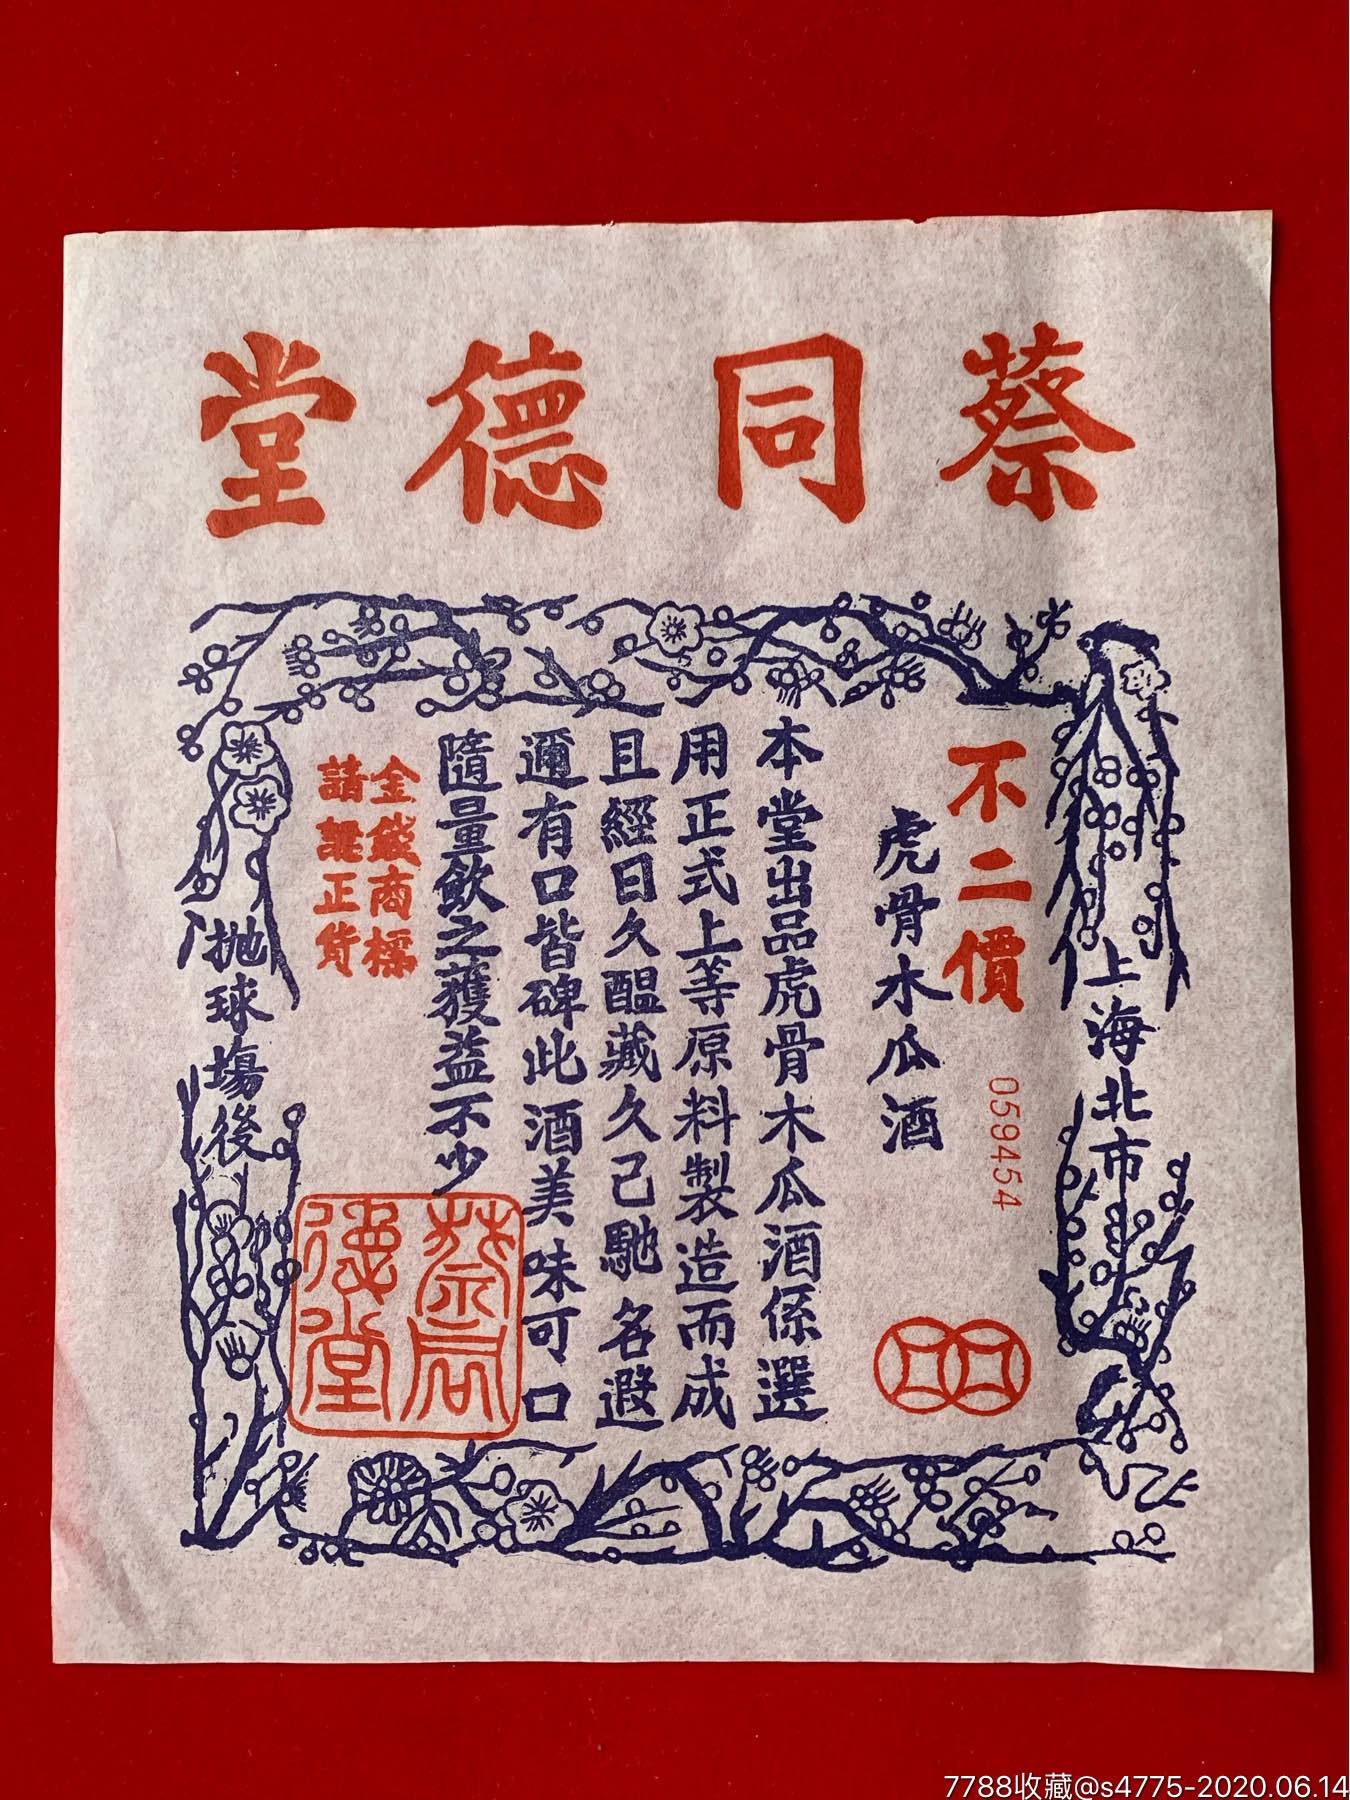 蔡同德堂
上海北市
不二價
059454
虎骨木瓜酒
本堂出品虎骨木瓜酒係選
用正式上等原料製造而成
且經日久醞藏久已馳名遐
邇有口皆碑此酒美味可口
隨量飲之獲益不少
金錢商標
請認正貨
拋球場後
蔡同德堂
7788收藏@s4775-2020.06.14